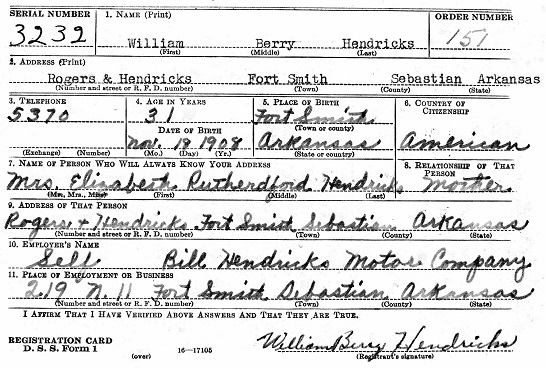 SERIAL NUMBER 1. NAME (Print) ORDER NUMBER
3232 William Berry Hendricks 151
(First) (Middle) (Last)
2. ADDRESS (Print)
Rogers & Hendricks Fort Smith Sebastian Arkansas
(Number and street or R. F. D. number) (Town) (County) (State)
3. TELEPHONE 4. AGE IN YEARS 5. PLACE OF BIRTH 6. COUNTRY OF CITIZENSHIP
5370 31 Fort Smith
(Town or county)
DATE OF BIRTH
Nov. 18 1908 Arkansas American
(Exchange) (Number) (Mo.) (Day) (Yr.) (State or country)
7. NAME OF PERSON WHO WILL ALWAYS KNOW YOUR ADDRESS 8. RELATIONSHIP OF THAT PERSON
Mrs. Elizabeth Rutherdford Hendricks Mother
(Mr., Mrs., Miss) (First) (Middle) (Last)
9. ADDRESS OF THAT PERSON
Rogers + Hendricks Fort Smith Sebastian Arkansas
(Number and street or R. F. D. number) (Town) (County) (State)
10. EMPLOYER'S NAME
Self Bill Hendricks Motor Company
11. PLACE OF EMPLOYMENT OR BUSINESS
219 N. 11 Fort Smith Sebastian Arkansas
(Number and street or R. F. D. number) (Town) (County) (State)
I AFFIRM THAT I HAVE VERIFIED ABOVE ANSWERS AND THAT THEY ARE TRUE.
REGISTRATION CARD
D. S. S. Form 1 William Berry Hendricks
(over) 16—17105 (Registrant's signature)